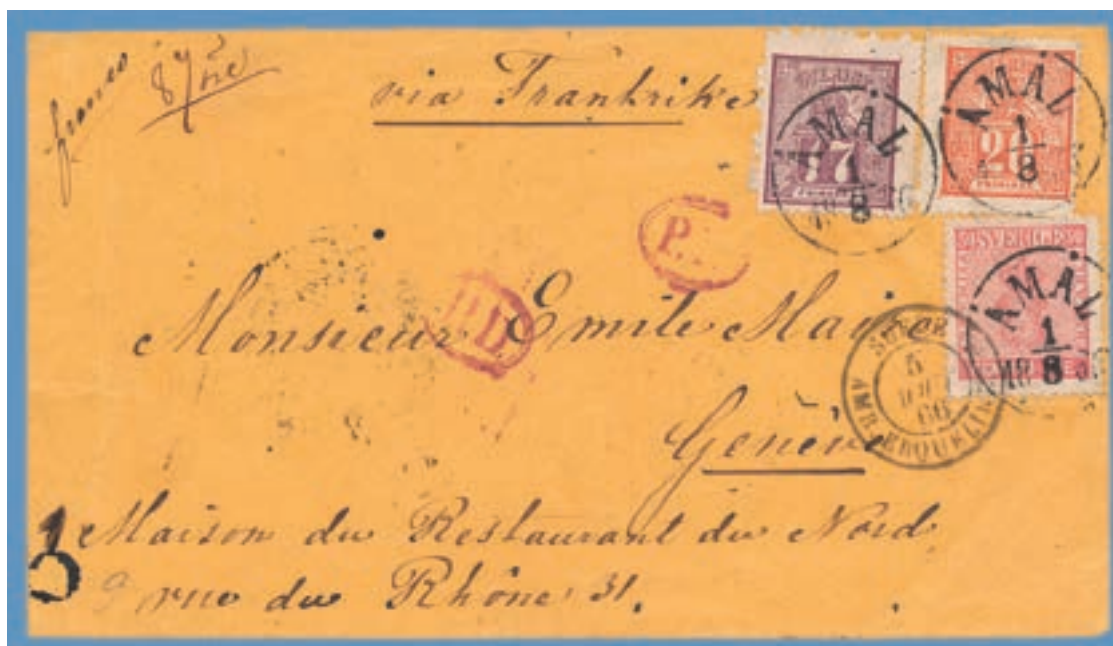 franco
87 öre
via Frankrike
ÅMÅL
1
8
17
ÅMÅL
1
8
20
P.
SVERIGE
ÅMÅL
1
8
P.D
Monsieur Emile
5
66
Genève
Maison du Restaurant du Nord
rue du Rhône 31.